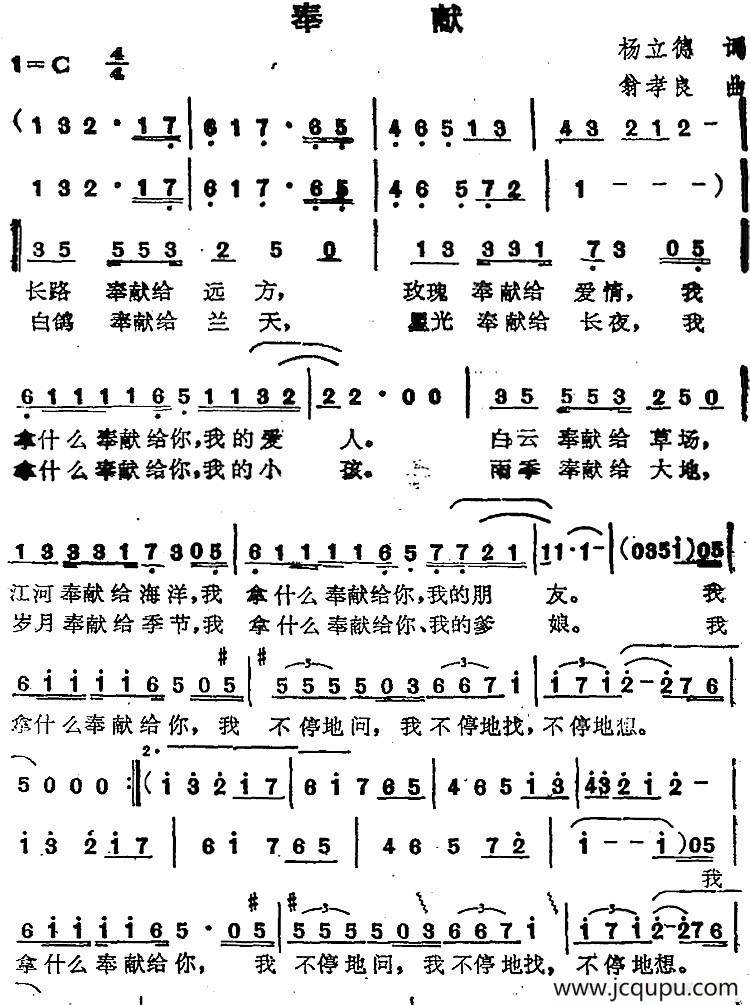 奉 献
1=C 4/4
杨立德 词
翁孝良 曲
(1 3 2 · 1 7 | 6 1 7 · 6 5 | 4 6 5 1 3 | 4 3 2 1 2 – |
1 3 2 · 1 7 | 6 1 7 · 6 5 | 4 6 5 7 2 | 1 – – – )
3 5 5 5 3 2 5 0 | 1 3 3 3 1 7 3 0 5 |
长路 奉献给 远 方, 玫瑰 奉献给 爱情, 我
白鸽 奉献给 兰 天, 星光 奉献给 长夜, 我
6 1 1 1 1 6 5 1 1 3 2 | 2 2 · 0 0 | 3 5 5 5 3 2 5 0
拿什么奉献给你,我的爱 人。 白云 奉献给 草场,
拿什么奉献给你,我的小 孩。 雨季 奉献给 大地,
1 3 3 3 1 7 3 0 5 | 6 1 1 1 1 6 5 7 7 2 1 | 1 1 · 1 – | (0 3 5 i) 0 5
江河奉献给海洋,我 拿什么奉献给你,我的朋 友。 我
岁月奉献给季节,我 拿什么奉献给你、我的爹 娘。 我
6 i i i i 6 5 0 #5 | #5 5 5 5 0 3 6 6 7 i | i 7 i 2 – 2 7 6
拿什么奉献给你, 我 不停地问, 我不停地找, 不停地想。
5 0 0 0 :‖ 2. ( i 3 2 i 7 | 6 i 7 6 5 | 4 6 5 i 3 | 4 3 2 i 2 –
i 3 2 i 7 | 6 i 7 6 5 | 4 6 5 7 2 | i – – i ) 0 5
我
6 i i i i 6 5 · 0 #5 | #5 5 5 5 0 3 6 6 7 i | i 7 i 2 – 2 7 6
拿什么奉献给你, 我 不停地问, 我不停地找, 不停地想。
www.jcqupu.com